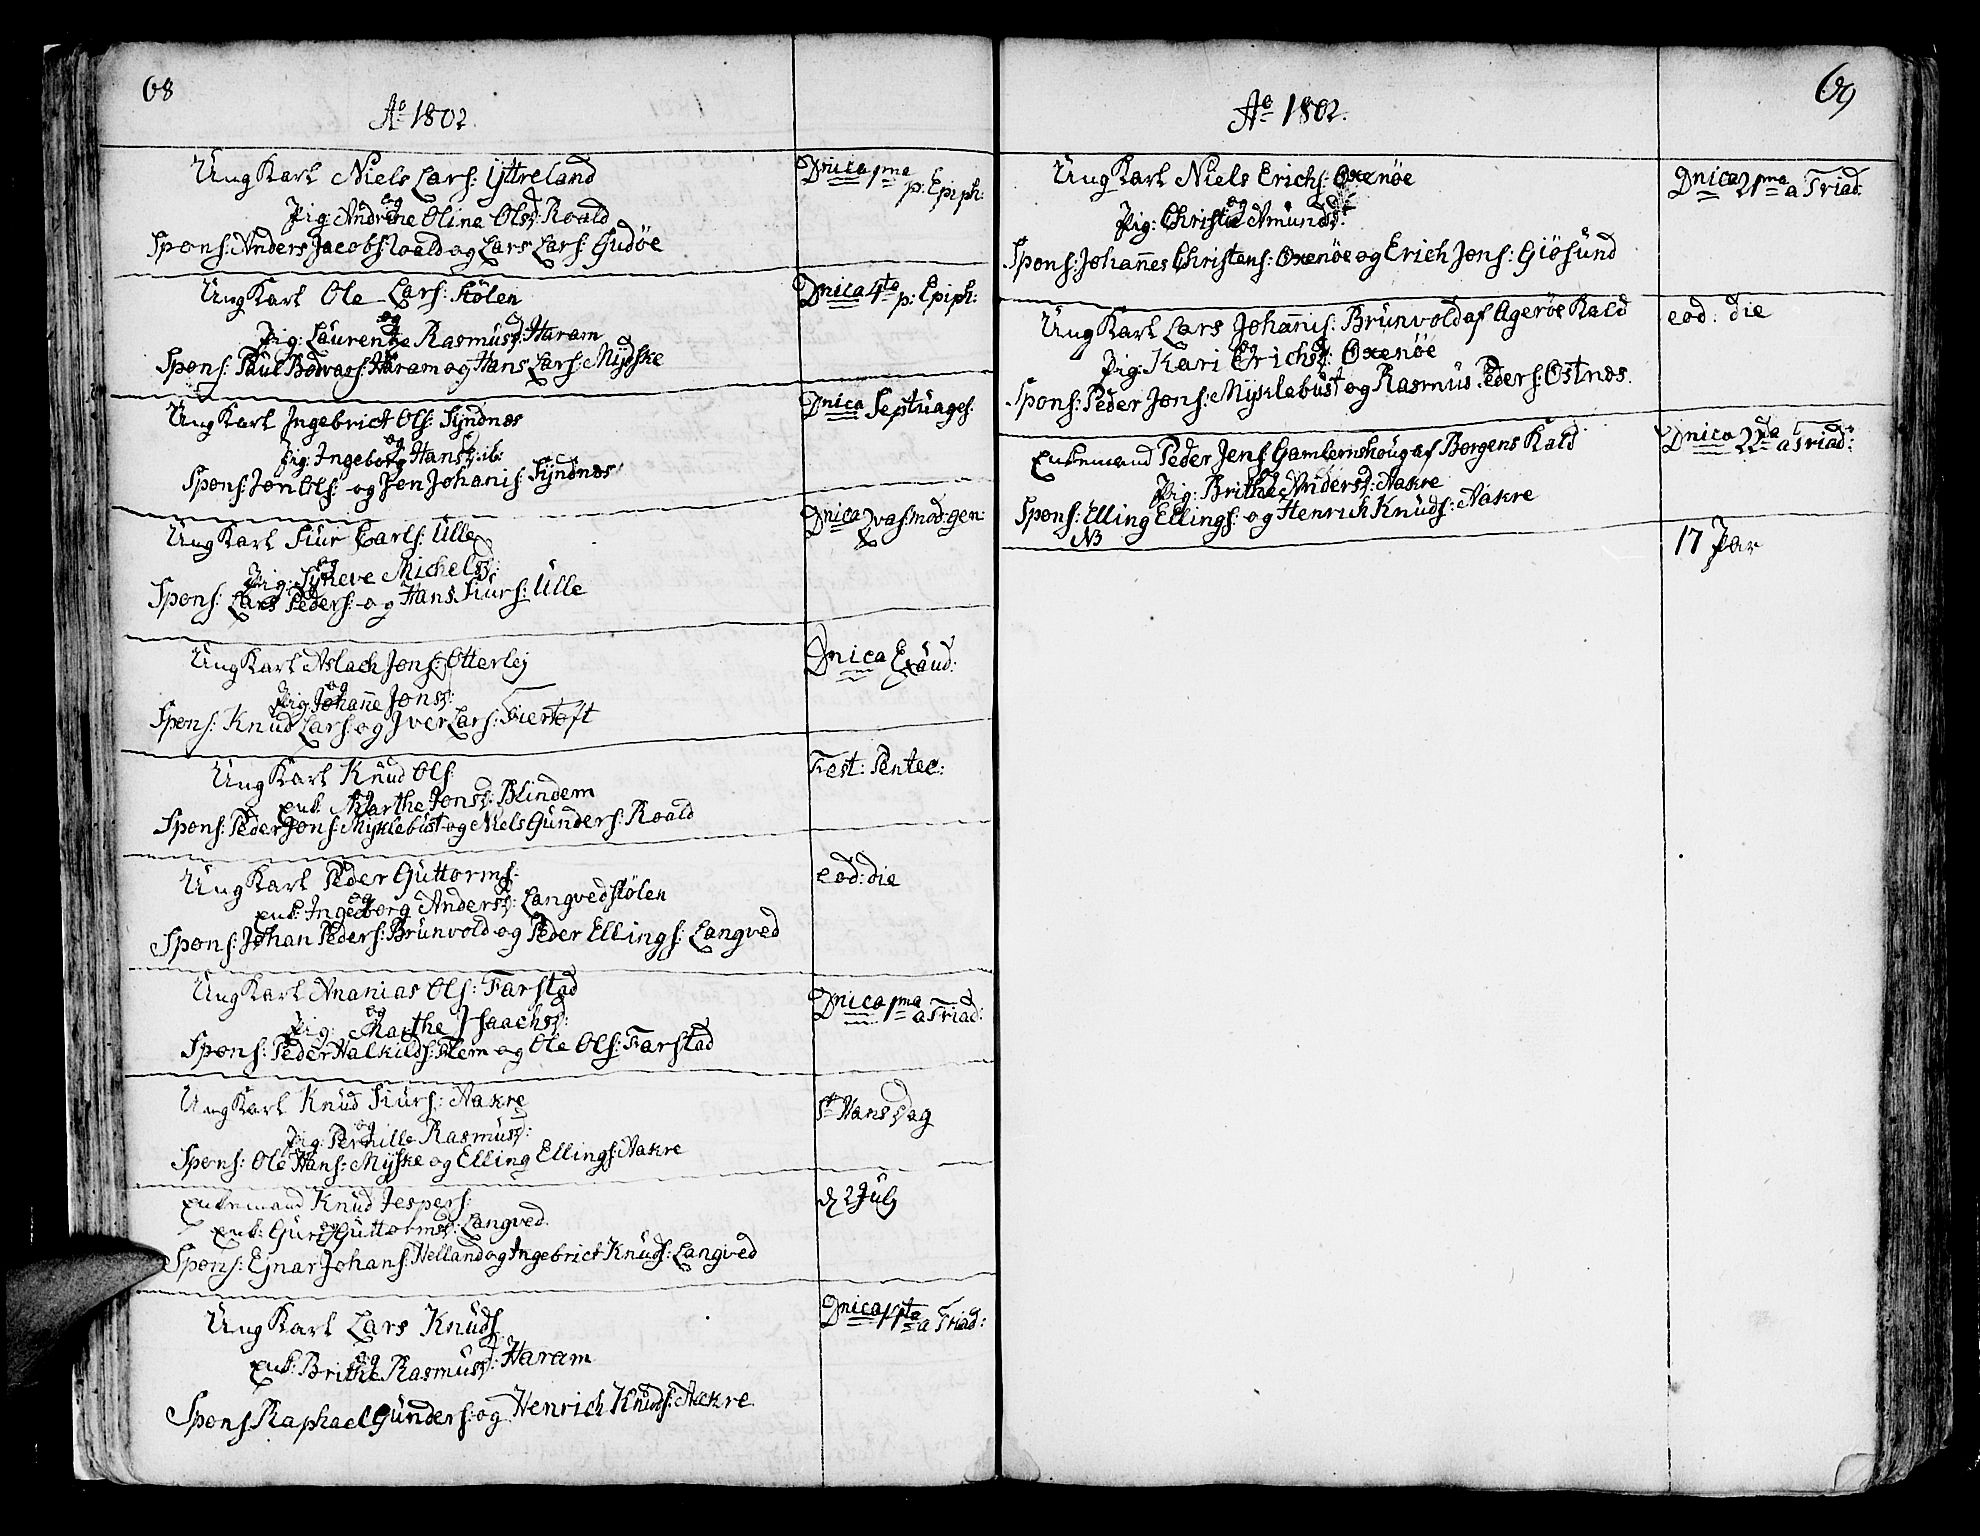 68
Aº 1802.
Ung Karl Niels Lars: Yttreland
og
Pig: Andrine Oline Olsd: Roald
Spons: Anders Jacobs: Roald og Lars Lars: Gudøe
Dnica 1ma p: Epiph:
Ung Karl Ole Lars: Stølen
og
Pig: Laurentze Rasmusd: Haram
Spons: Paul Haram og Hans Lars: Mydske
Dnica 4ta p: Epiph:
Ung Karl Ingebrict Ols: Syndnes
og
Pig: Ingeborg Hansd: ib:
Spons: Jon Ols: og Johanis: Syndnes
Dnica Septuages:
Ung Karl Siur Carls: Ulle
og
Pig: Syneve Michelsd:
Spons: Lars Peders: og Hans Siurs: Ulle
Dnica Qvasimod: gen:
Ung Karl Aslach Jons: Otterlej
og
Pig: Johañe Jonsd:
Spons: Knud Lars: og Iver Lars: Fiertoft
Dnica Exaud:
Ung Karl Knud Ols:
og
Enk: Marthe Jonsd: Blindem
Spons: Peder Jons: Myklebust og Niels Gunders: Roald
Fest: Pentec:
Ung Karl Peder Guttorms:
og
Enk: Ingeborg Andersd: Langvedstølen
Spons: Johan Peders: Brunvold og Peder Ellings: Langved
eod: die
Ung Karl Ananias Ols: Farstad
og
Pig: Marthe Isaachsd:
Spons: Peder Halkilds: Flem og Ole Ols: Farstad
Dnica 1ma a Triad:
Ung Karl Knud Siurs: Aakre
og
Pig: Pernille Rasmusd:
Spons: Ole Hans: Myske og Elling Ellings: Aakre
St Hansdag
Enkemand Knud Jespers:
og
Enk: Guri Guttormsd: Langved
Spons: Ejnar Johans: Helland og Ingebrict Knuds: Langved
d 2 July
Ung Karl Lars Knuds
og
Enk: Brithe Rasmusd: Haram
Spons: Raphael Gunders: og Henrich Knuds: Aakre
Dnica a Triad:
69
Aº 1802.
Ung Karl Niels Erichs: Oxenøe
og
Pig: Christie Amundsd:
Spons: Johañes Christens: Oxenøe og Erich Jons: Giøsund
Dnica 21ma a Triad:
Ung Karl Lars Johañis: Brunvold af Agerøe Kald
og
Pig: Kari Erichsd: Oxenøe
Spons: Peder Jons: Myklebust og Rasmus Peders: Ostnes.
eod: die
Enkemand Peder Jens: Gamlemshoug af Borgens Kald
og
Pig: Brithe Andersd: Aakre
Spons: Elling Ellings: og Henrich Knuds: Aakre
Dnica 22da a Triad:
NB
17 Par